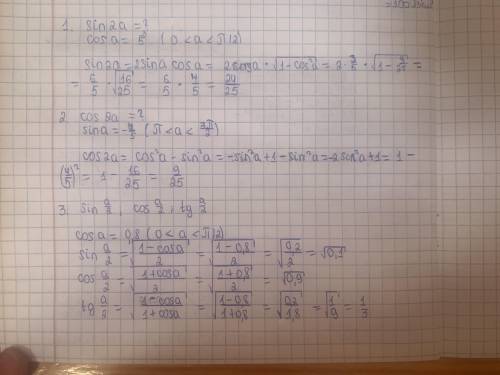 1. sin2a = ?
cosa = 3/5 (0 < a < П/2)
sin2a = 2sina cosa = 2cosa · √(1-cos²a) = 2 · 3/5 · √(1 - 9/25) =
= 6/5 · √(16/25) = 6/5 · 4/5 = 24/25
2. cos2a = ?
sina = -4/5 (П < a < 3П/2)
cos2a = cos²a - sin²a = -sin²a + 1 - sin²a = -2sin²a + 1 = 1 -
(4/5)² = 1 - 16/25 = 9/25
3. sin a/2, cos a/2, tg a/2
cosa = 0,8 (0 < a < П/2)
sin a/2 = √((1-cosa)/2) = √((1-0,8)/2) = √(0,2/2) = √0,1
cos a/2 = √((1+cosa)/2) = √((1+0,8)/2) = √0,9
tg a/2 = √((1-cosa)/(1+cosa)) = √((1-0,8)/(1+0,8)) = √(0,2/1,8) = √(1/9) = 1/3